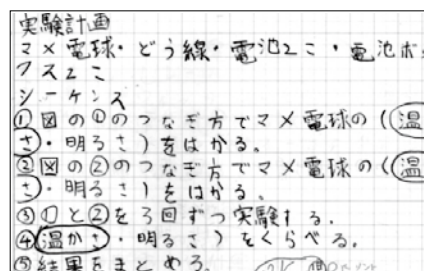 実験計画
マメ電球・どう線・電池2こ・電池ボッ
クス2こ
シーケンス
①図の①のつなぎ方でマメ電球の((温
さ)・明るさ)をはかる。
②図の②のつなぎ方でマメ電球の((温
さ)・明るさ)をはかる。
③①と②を3回ずつ実験する。
④(温かさ・明るさ)をくらべる。
⑤結果をまとめる。